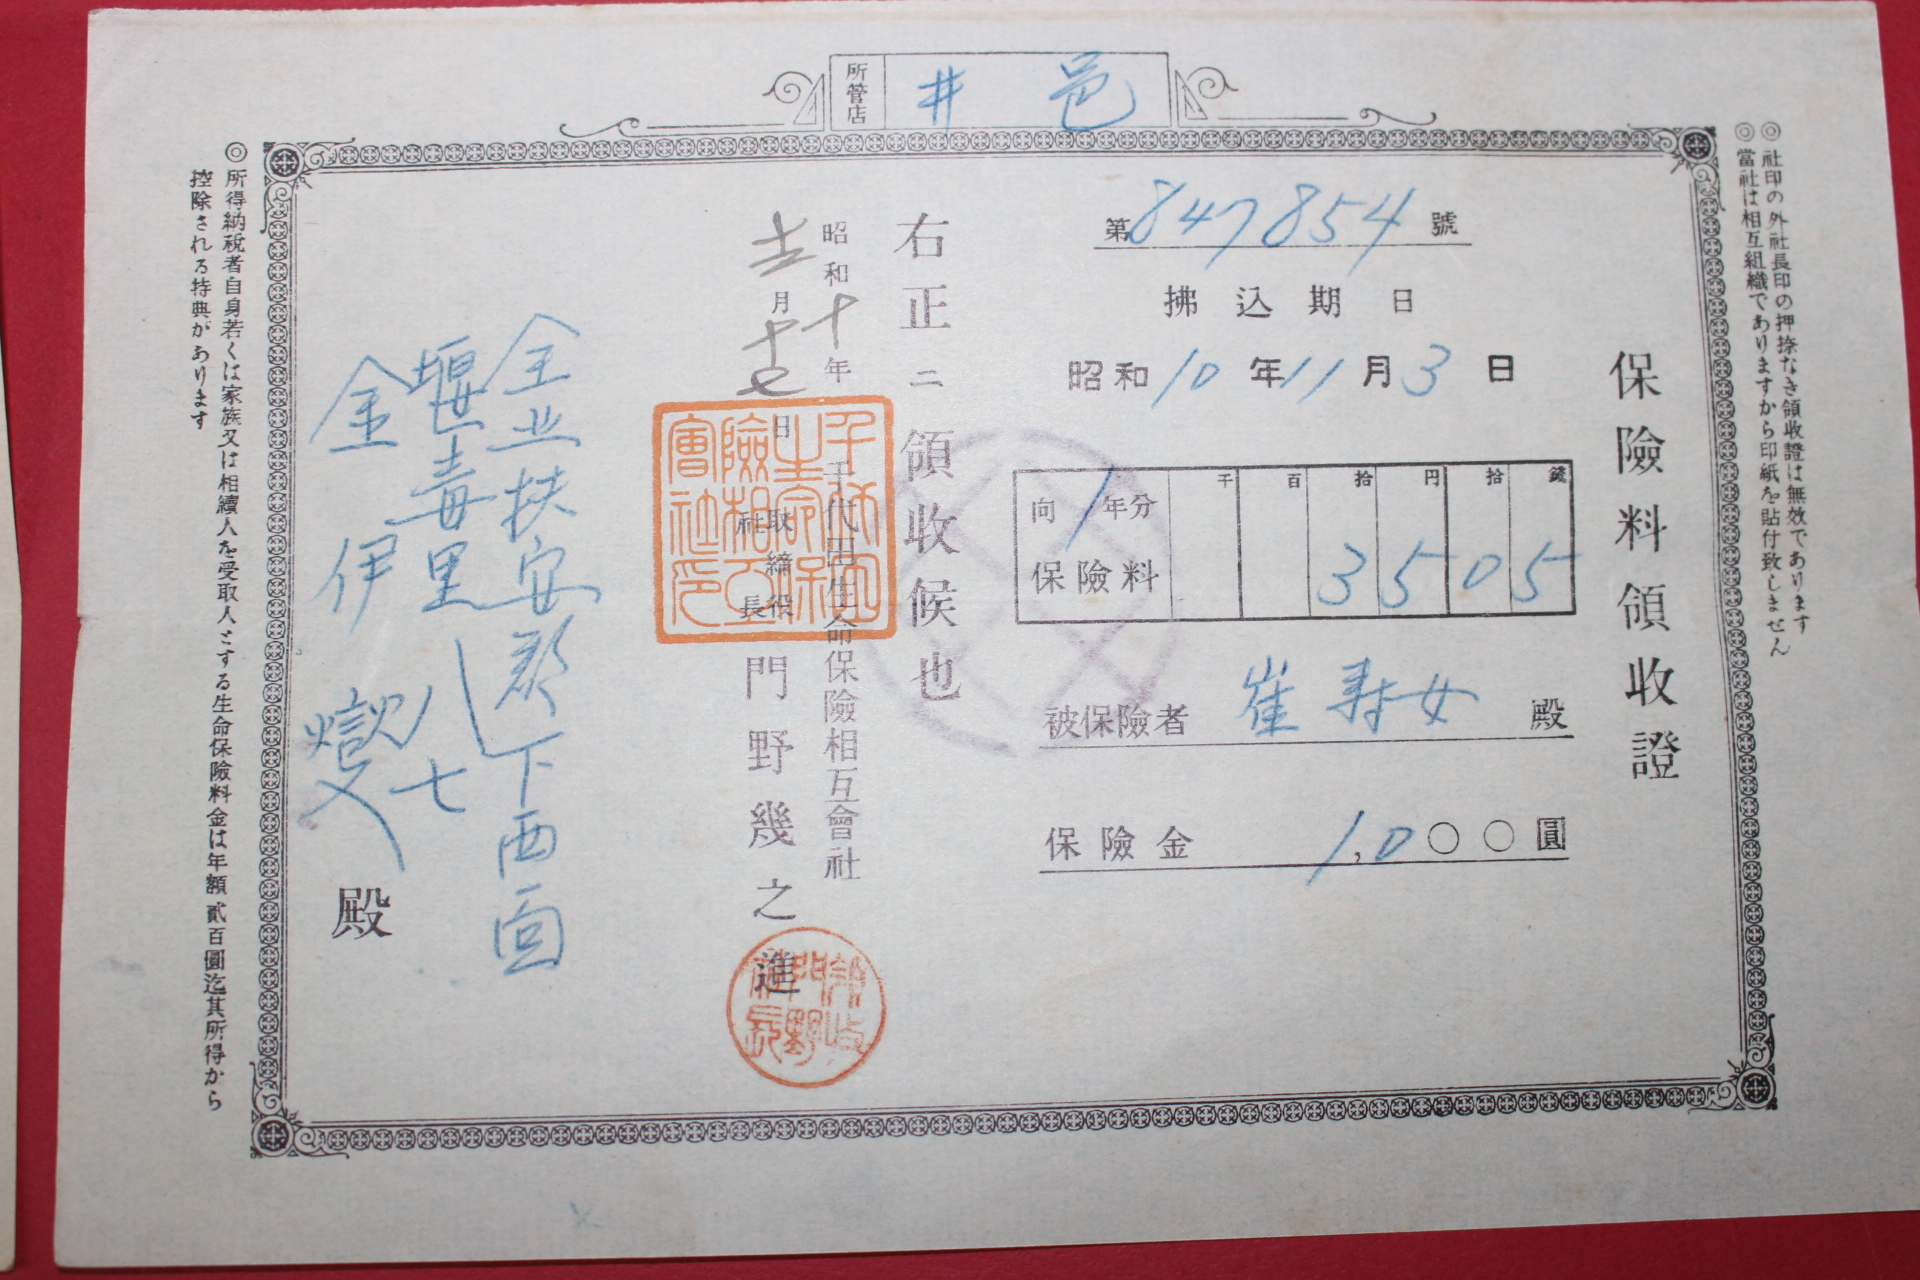 所管店 井邑
◎社印の外社長印の押捺なき領收證は無效であります
◎當社は相互組織でありますから印紙を貼付致しません
保險料領收證
第847854號
拂込期日
昭和10年11月3日
向1年分保險料
千 百 拾 円 拾 錢
3505
被保險者 崔壽女 殿
保險金 1,000圓
右正ニ領收候也
昭和十年
十二月十七日
千代田生命保險相互會社
取締役社長 門野幾之進
全北扶安郡下西面
堰毒里八七
金伊燮
殿
◎所得納稅者自身若くは家族又は相續人を受取人とする生命保險料金は年額貳百圓迄其所得から
控除される特典があります